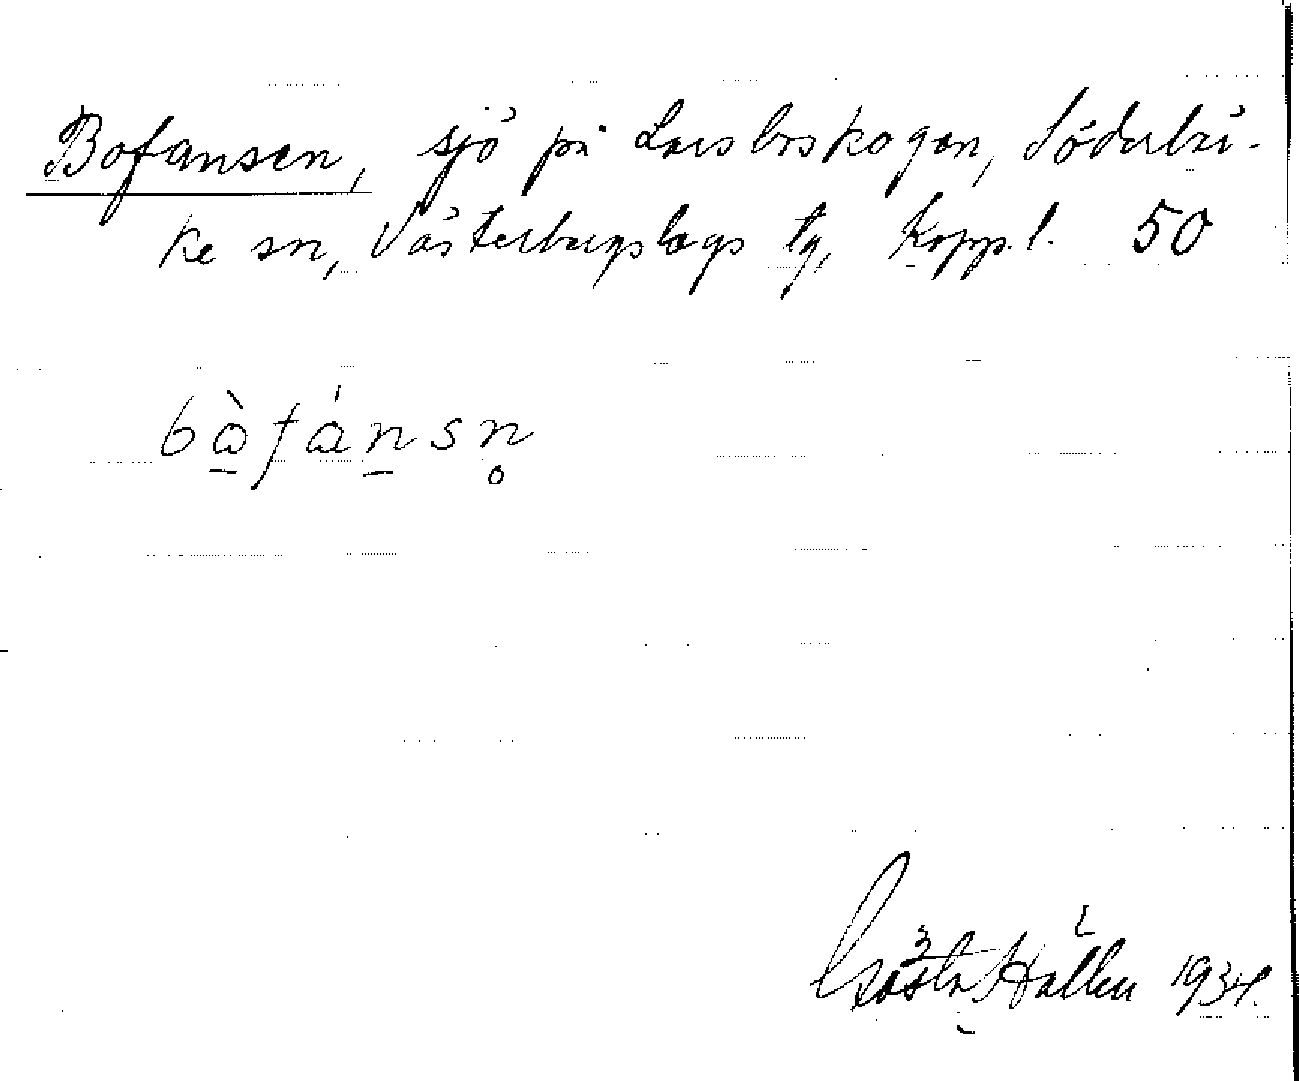 Bofansen, sjö på Larsboskogen, Söderbär-
ke sn, Västerbergslags tg, Koppl. 50
bòfánsn̥
Gösta Hallén 1934.